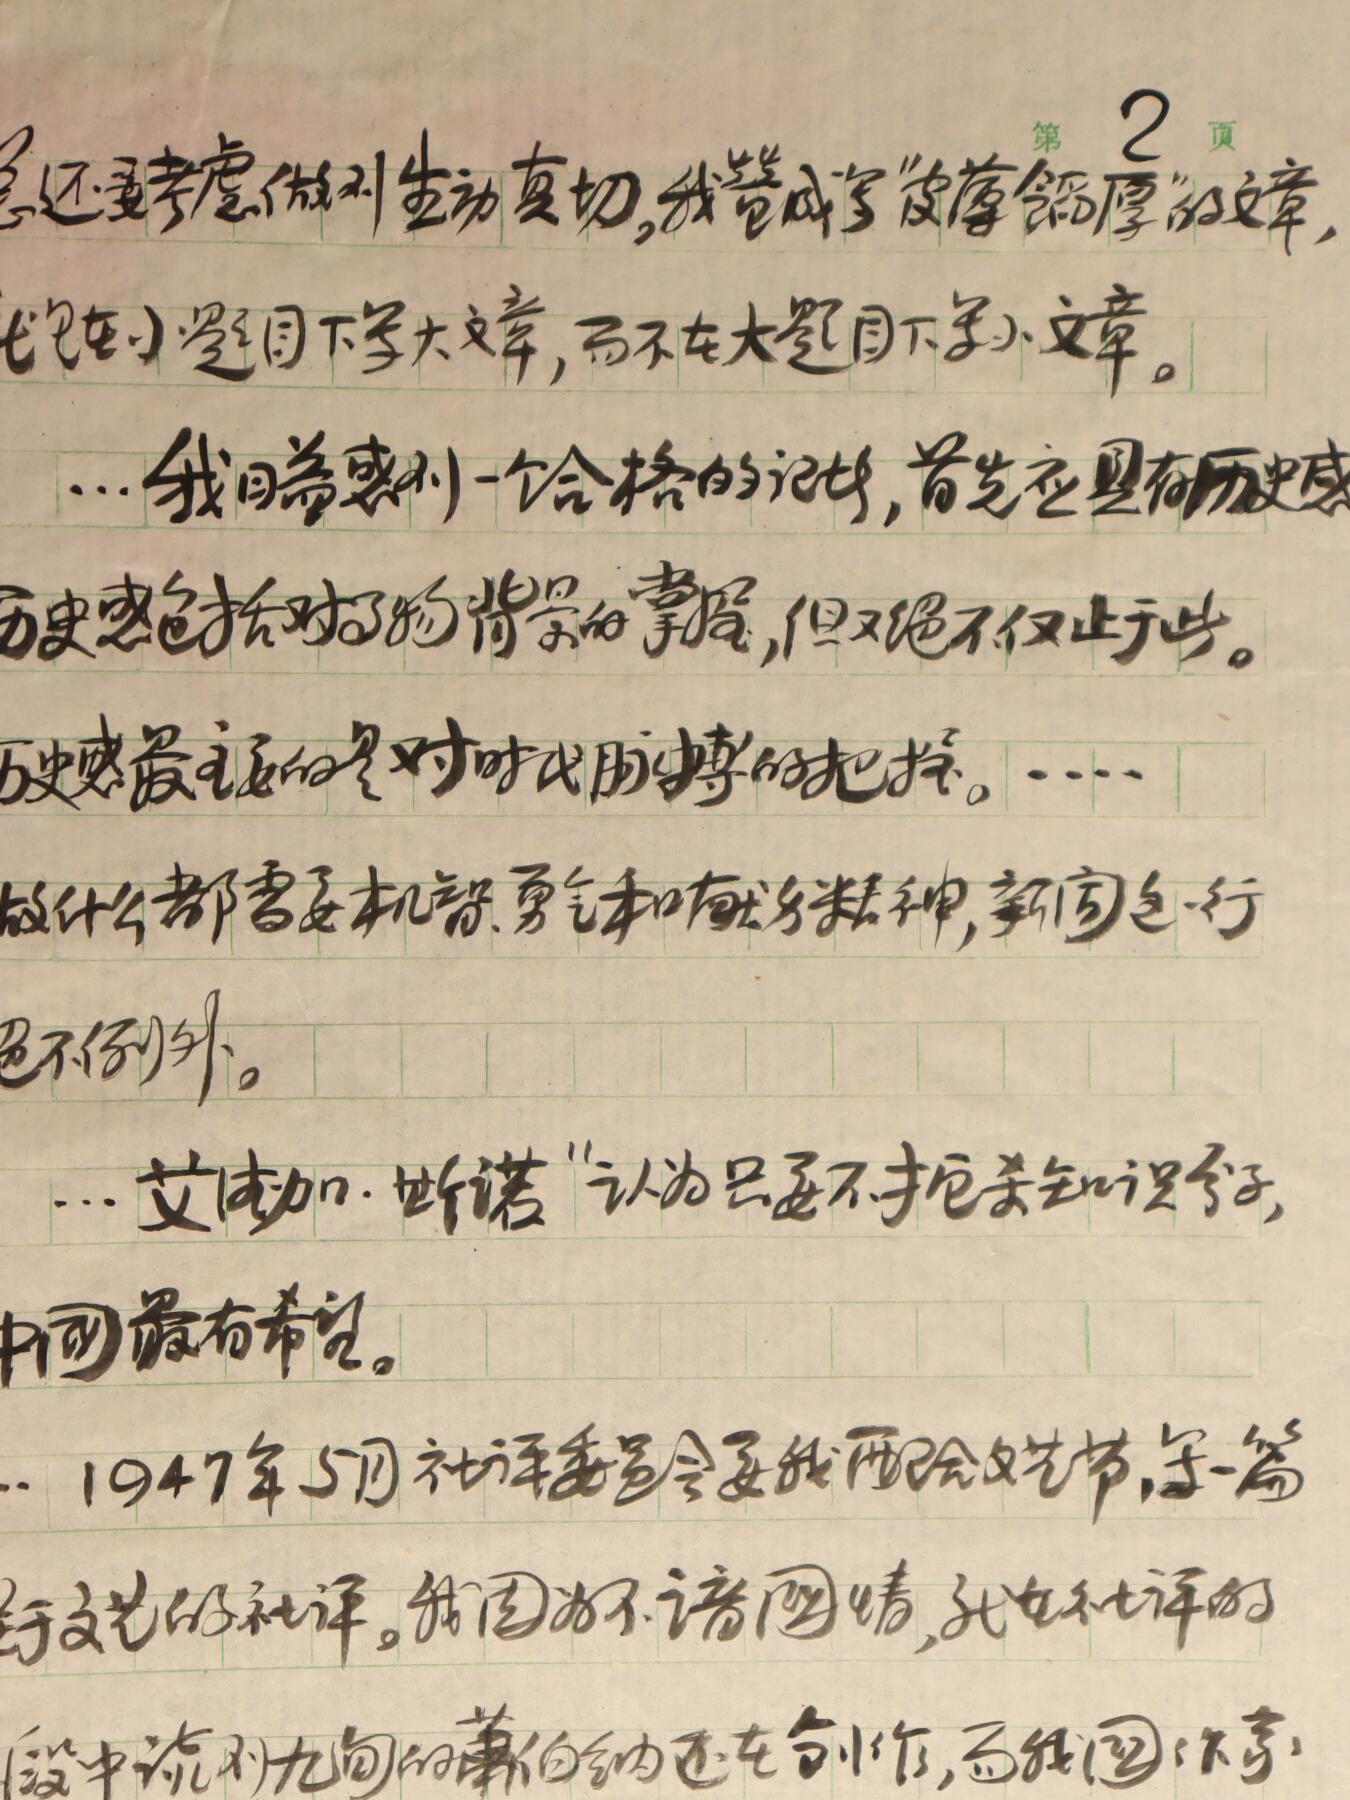 第2页
还要考虑做到生动真切。我赞成写"皮薄馅厚"的文章,
就是在小题目下写大文章,而不在大题目下写小文章。
…我日益感到一个合格的记者,首先应具有历史感
历史感包括对事物背景的掌握,但又绝不仅止于此。
历史感最主要的是对时代脉搏的把握。····
做什么都需要机智、勇气和献身精神,新闻这一行
绝不例外。
…艾德加·斯诺"认为只要不扼杀知识分子,
中国最有希望。
‥1947年5月社评委员会要我配合文艺节,写一篇
关于文艺的社评。我因为不谙国情,就在社评的
段中谈到九旬的萧伯纳还在创作,而我国作家